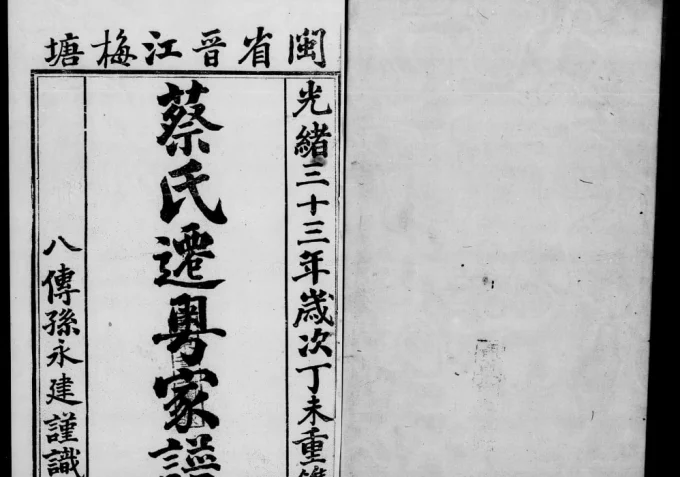 閩省晋江梅塘
光緒三十三年歲次丁未重
蔡氏遷粤家譜
八傳孫永建謹識